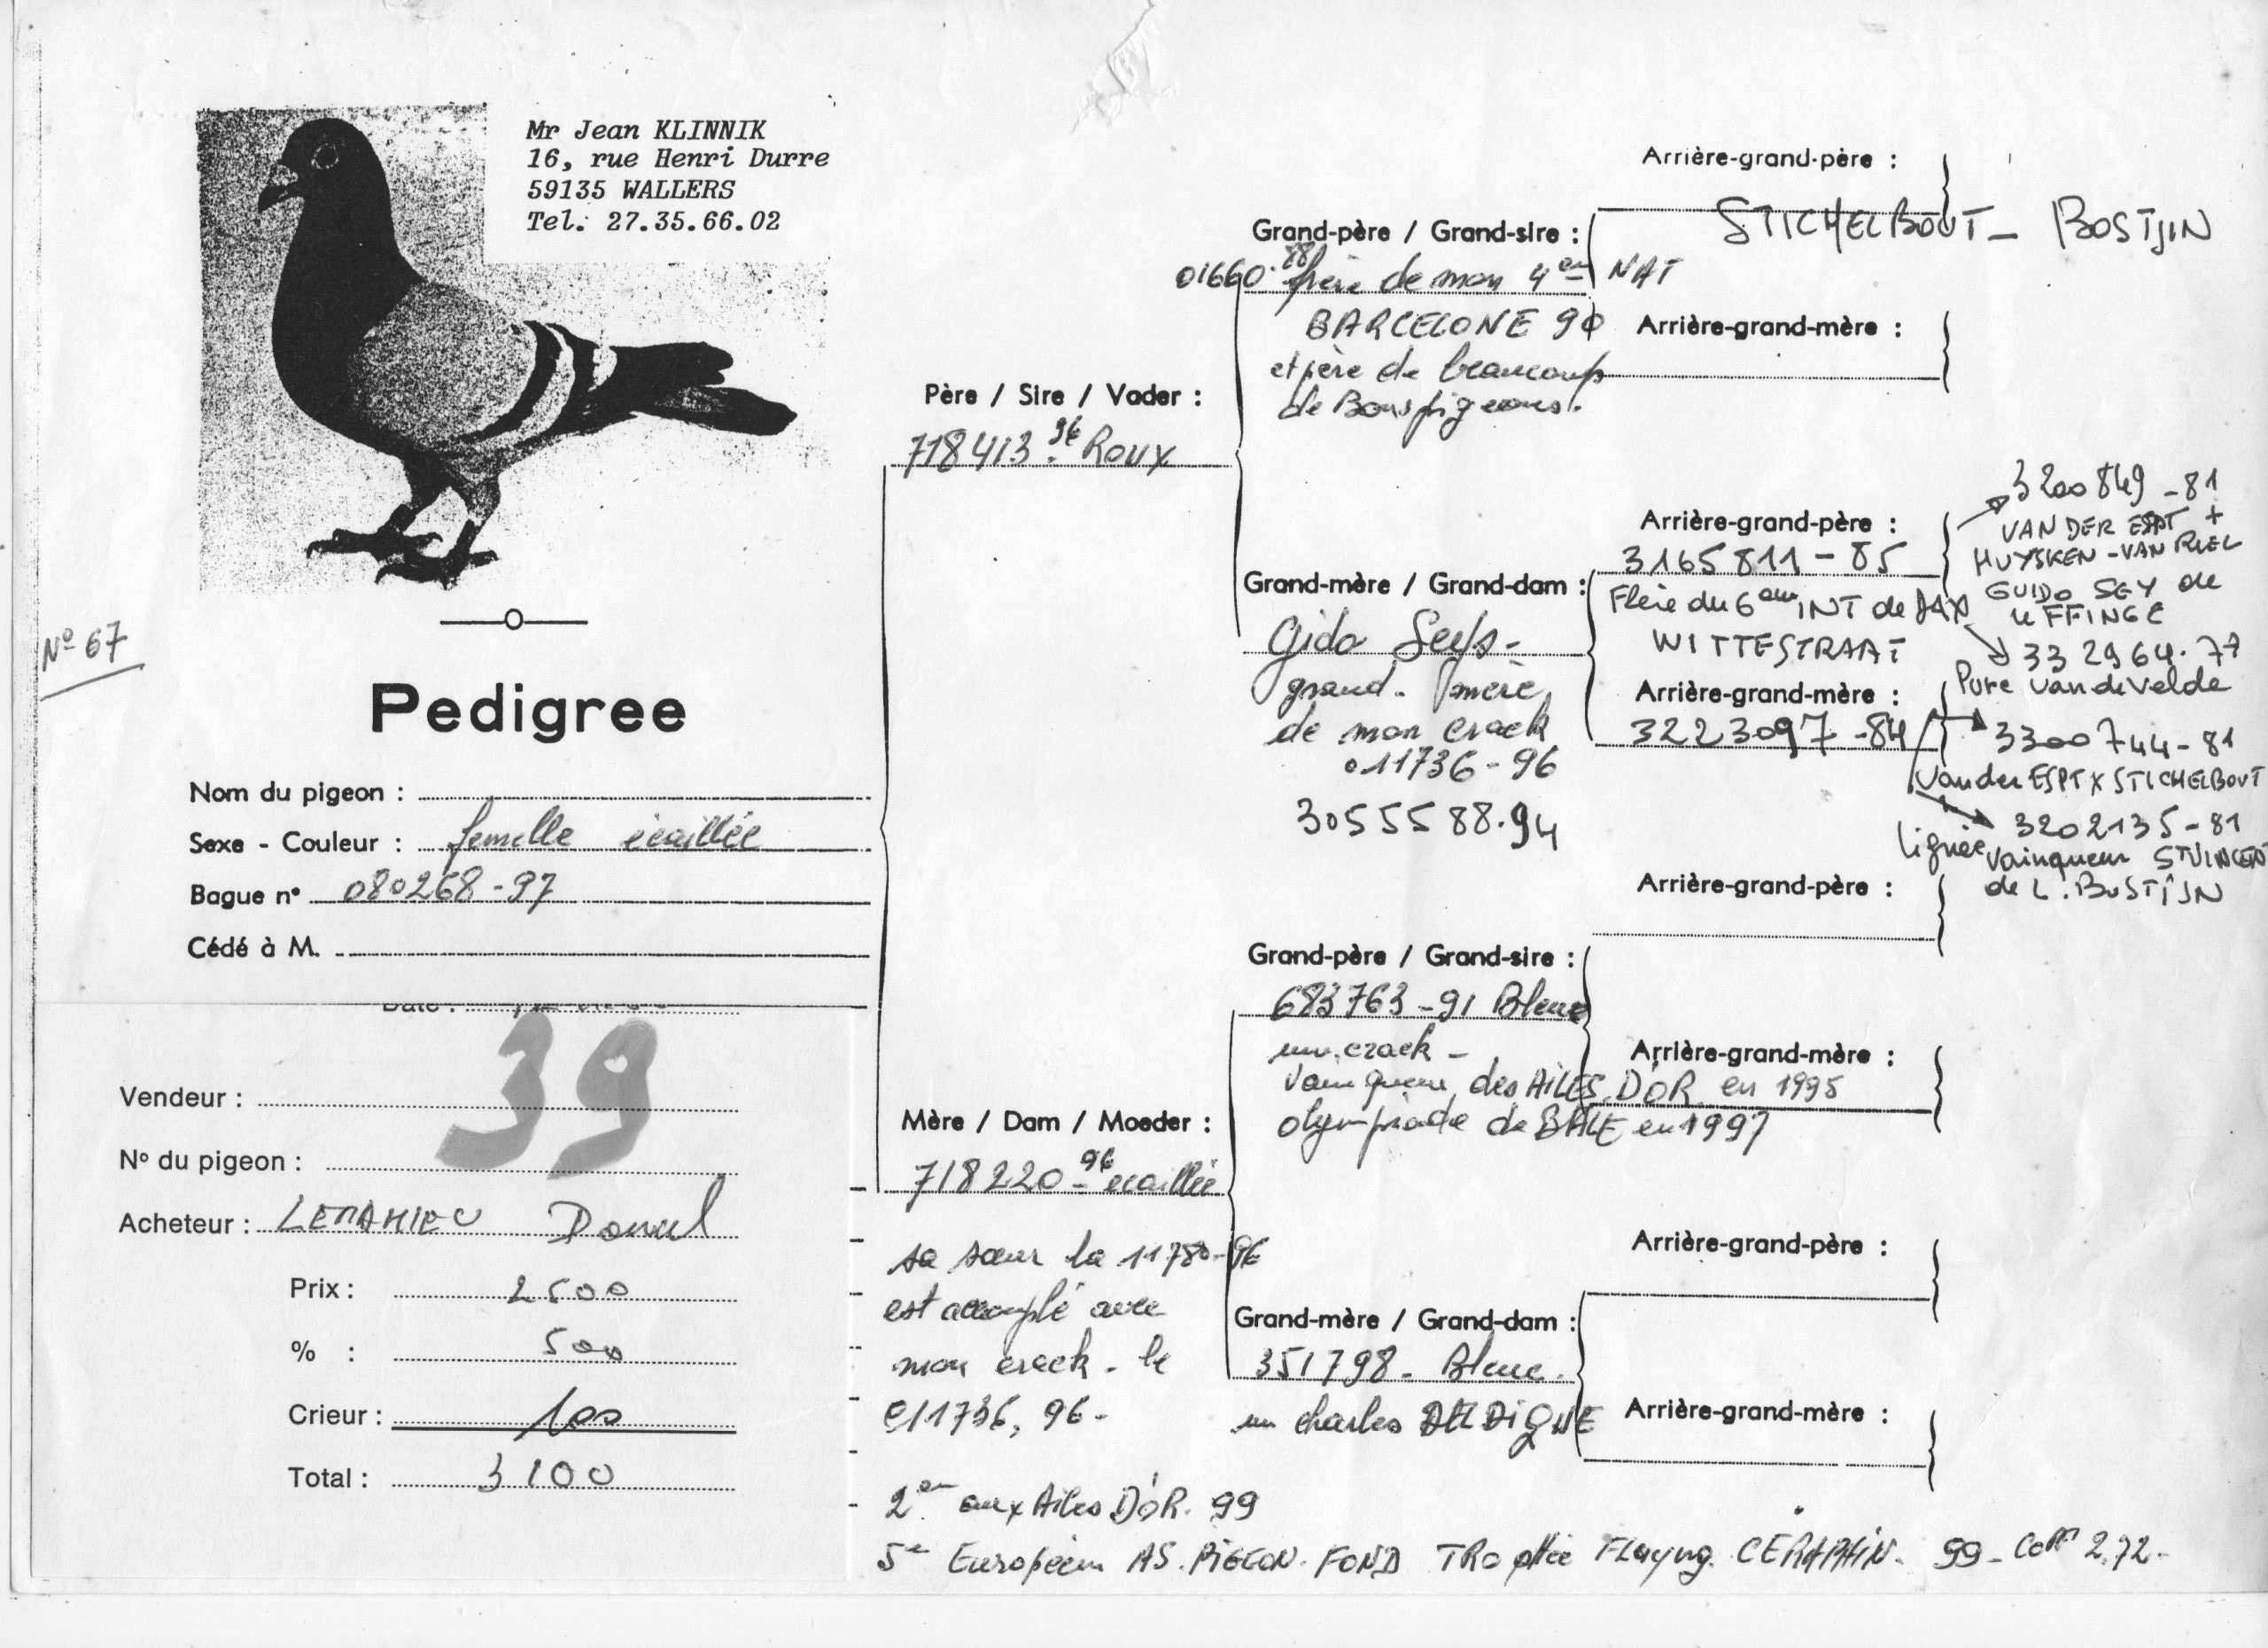 Mr Jean KLINNIK
16, rue Henri Durre
59135 WALLERS
Tel. 27.35.66.02
N° 67
Pedigree
Nom du pigeon :
Sexe - Couleur : femelle écaillée
Bague n° 080268-97
Cédé à M.
Date :
39
Vendeur :
N° du pigeon :
Acheteur : LEMAHIEU
Prix : 2500
% : 500
Crieur : 100
Total : 3100
Père / Sire / Vader :
718413.96 Roux
Mère / Dam / Moeder :
718220-96 écaillée
sa sœur la 11780-96
est accouplé avec
mon crack - le
011736, 96-
2em aux Ailes D'OR. 99
5e Européen AS. PIGEON. FOND TROphée CERAPHIN. 99- Coeff 2,72-
Grand-père / Grand-sire :
01660.88 frère de mon 4em NAT
BARCELONE 90
et père de beaucoup
de Bons pigeons.
Grand-mère / Grand-dam :
Gido Seys-
grand-mère
de mon crack
011736-96
3055588.94
Grand-père / Grand-sire :
683763-91 Bleue
un crack-
vainqueur des AILES D'OR en 1995
olympiade de BALE en 1997
Grand-mère / Grand-dam :
351798- Bleue.
un charles
Arrière-grand-père :
STICHELBOUT - BOSTJIN
Arrière-grand-mère :
Arrière-grand-père :
3165811-85
Frère du 6em INT de DAX
WITTESTRAAT
Arrière-grand-mère :
3223097-84
3200849-81
VAN DER ESPT +
HUYSKEN-VAN RIEL
GUIDO SEY de
LEFFINGE
332964.77
Pure Van de Velde
3300744-81
Van der ESPT X STICHELBOUT
3202135-81
lignée vainqueur ST VINCENT
de L. BOSTIJN
Arrière-grand-père :
Arrière-grand-mère :
Arrière-grand-père :
Arrière-grand-mère :